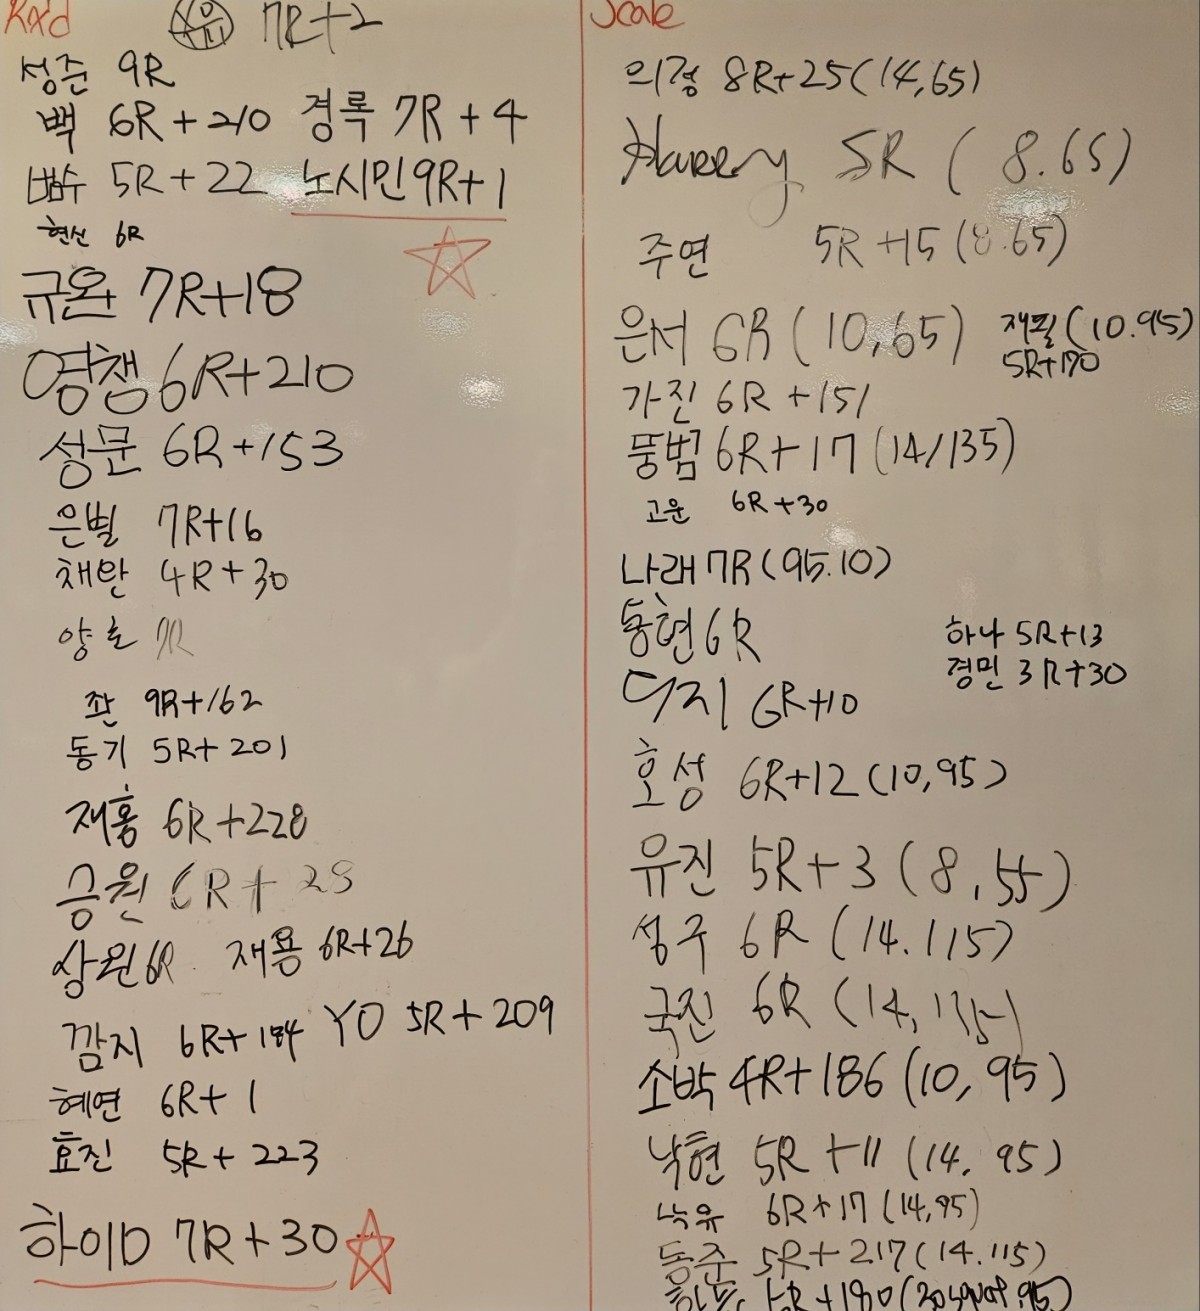 Rxd
7R+2
성준 9R
백 6R+210 경록 7R+4
범수 5R+22 노시민 9R+1
현신 6R
규온 7R+18
영챔 6R+210
성문 6R+153
은별 7R+16
채완 4R+30
양호 7R
좐 9R+162
동기 5R+201
재홍 6R+228
승원 6R+28
상원 6R 재용 6R+26
깜지 6R+184 YO 5R+209
혜연 6R+1
효진 5R+223
하이D 7R+30
Scale
의정 8R+25(14,65)
Harry 5R (8.65)
주연 5R+15(8.65)
은서 6R(10,65) 재필(10.95)
5R+170
가진 6R+151
뚱범 6R+17(14/135)
고운 6R+30
나래 7R(95.10)
동현 6R
하나 5R+13
경민 3R+30
6R+10
호성 6R+12(10,95)
유진 5R+3(8,55)
성구 6R(14.115)
국진 6R(14,135)
소박 4R+186(10,95)
낙현 5R+11(14.95)
낙유 6R+17(14,95)
동준 5R+217(14.115)
5R+180(20squat,95)